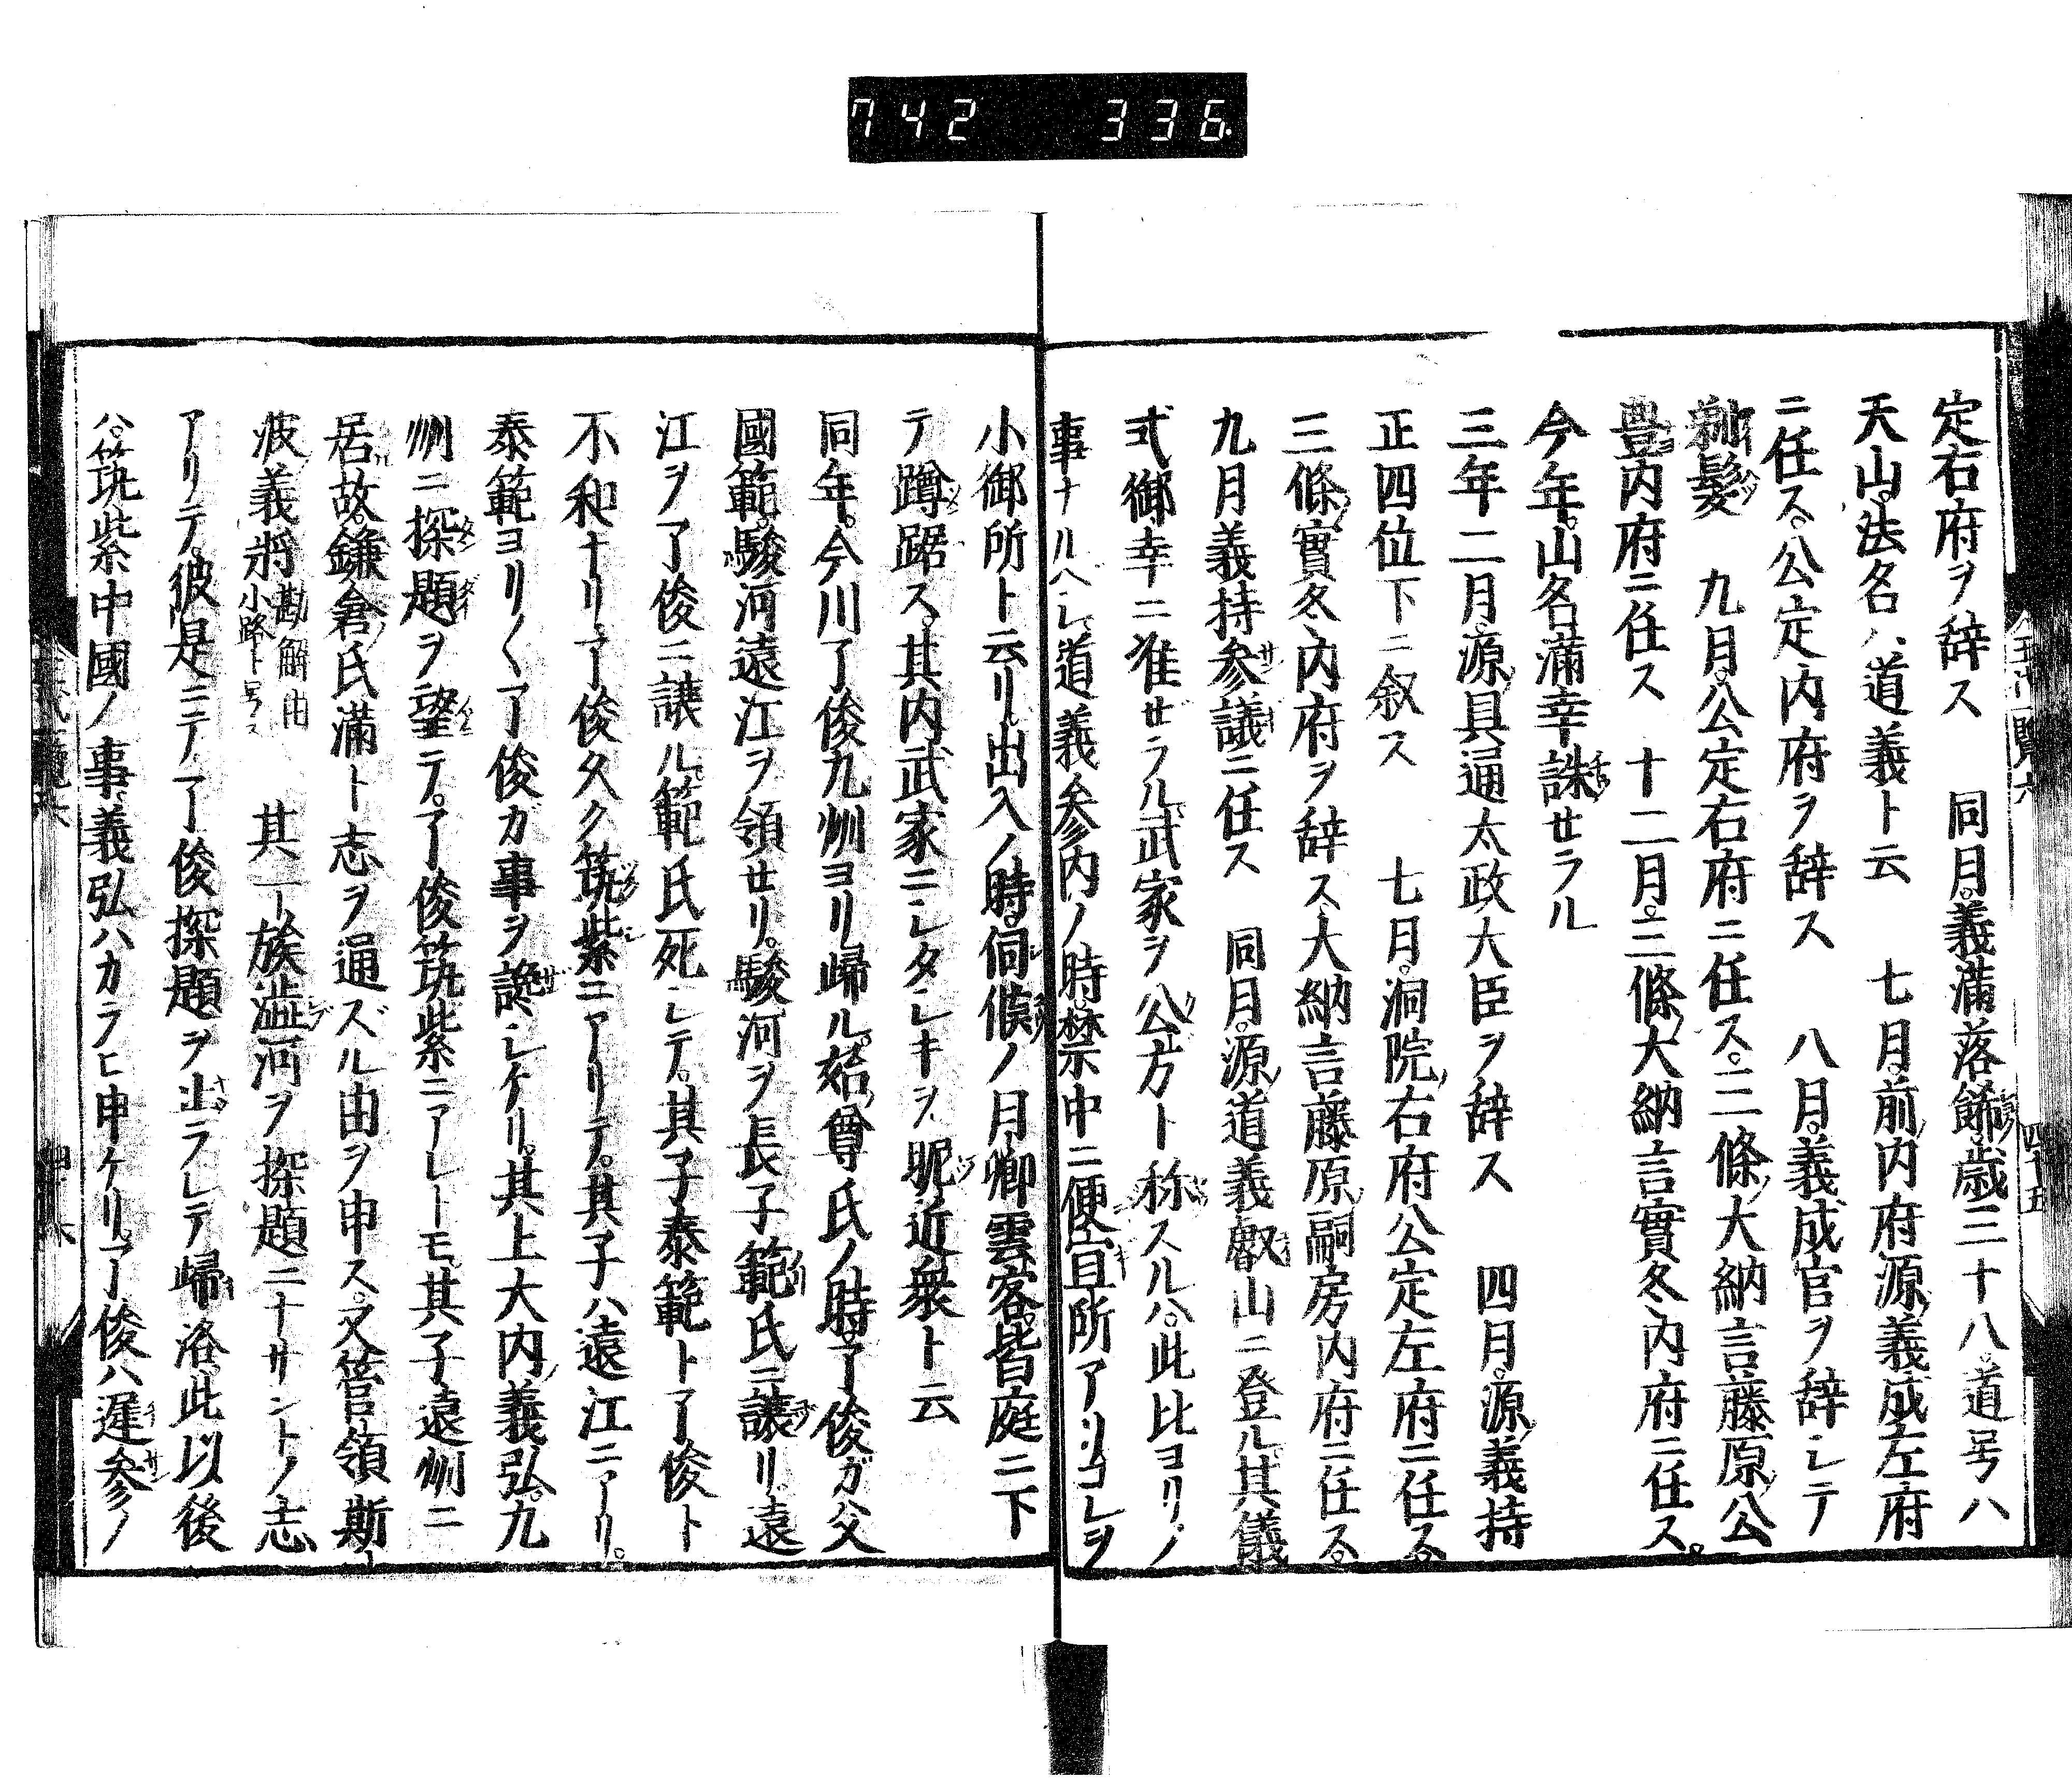 742 336.
定右府ヲ辞ス 同月義満落餝歳三十八道号ハ
天山法名ハ道義ト云 七月前内府源義成左府
ニ任ス公定内府ヲ辞ス 八月義成官ヲ辞シテ
剃髪 九月公定右府ニ任ス三條大納言藤原公
豊内府ニ任ス 十二月三條大納言實冬内府ニ任ス
今年山名滿幸誅セラル
三年二月源具通太政大臣ヲ辞ス 四月源義持
正四位下ニ叙ス 七月洞院右府公定左府ニ任ス
三條實冬内府ヲ辞ス大納言藤原嗣房内府ニ任ス
九月義持参議ニ任ス 同月源道義叡山ニ登ル其儀
式御幸ニ准セラル武家ヲ公方ト称スルハ此比ヨリノ
事ナルヘシ道義参内ノ時禁中ニ便宜所アリコレヲ
小御所ト云リ出入ノ時伺候ノ月卿雲客皆庭ニ下
テ蹲踞ス其内武家ニシタシキヲ昵近衆ト云
同年今川了俊九州ヨリ歸ル始尊氏ノ時了俊ガ父
國範駿河遠江ヲ領セリ駿河ヲ長子範氏ニ譲リ遠
江ヲ了俊ニ譲ル範氏死シテ其子泰範ト了俊ト
不和ナリ了俊久ク筑紫ニアリテ其子ハ遠江ニアリ
泰範ヨリ〱了俊ガ事ヲ讒シケリ其上大内義弘九
州ニ探題ヲ望テ了俊筑紫ニアレトモ其子遠州ニ
居故鎌倉氏滿ト志ヲ通ズル由ヲ申ス又管領斯
波義將勘解由小路ト号ス 其一族澁河ヲ探題ニナサントノ志
アリテ彼是ニテ了俊探題ヲ止ラレテ歸洛此以後
ハ筑紫中國ノ事義弘ハカラヒ申ケリ了俊ハ遅参ノ